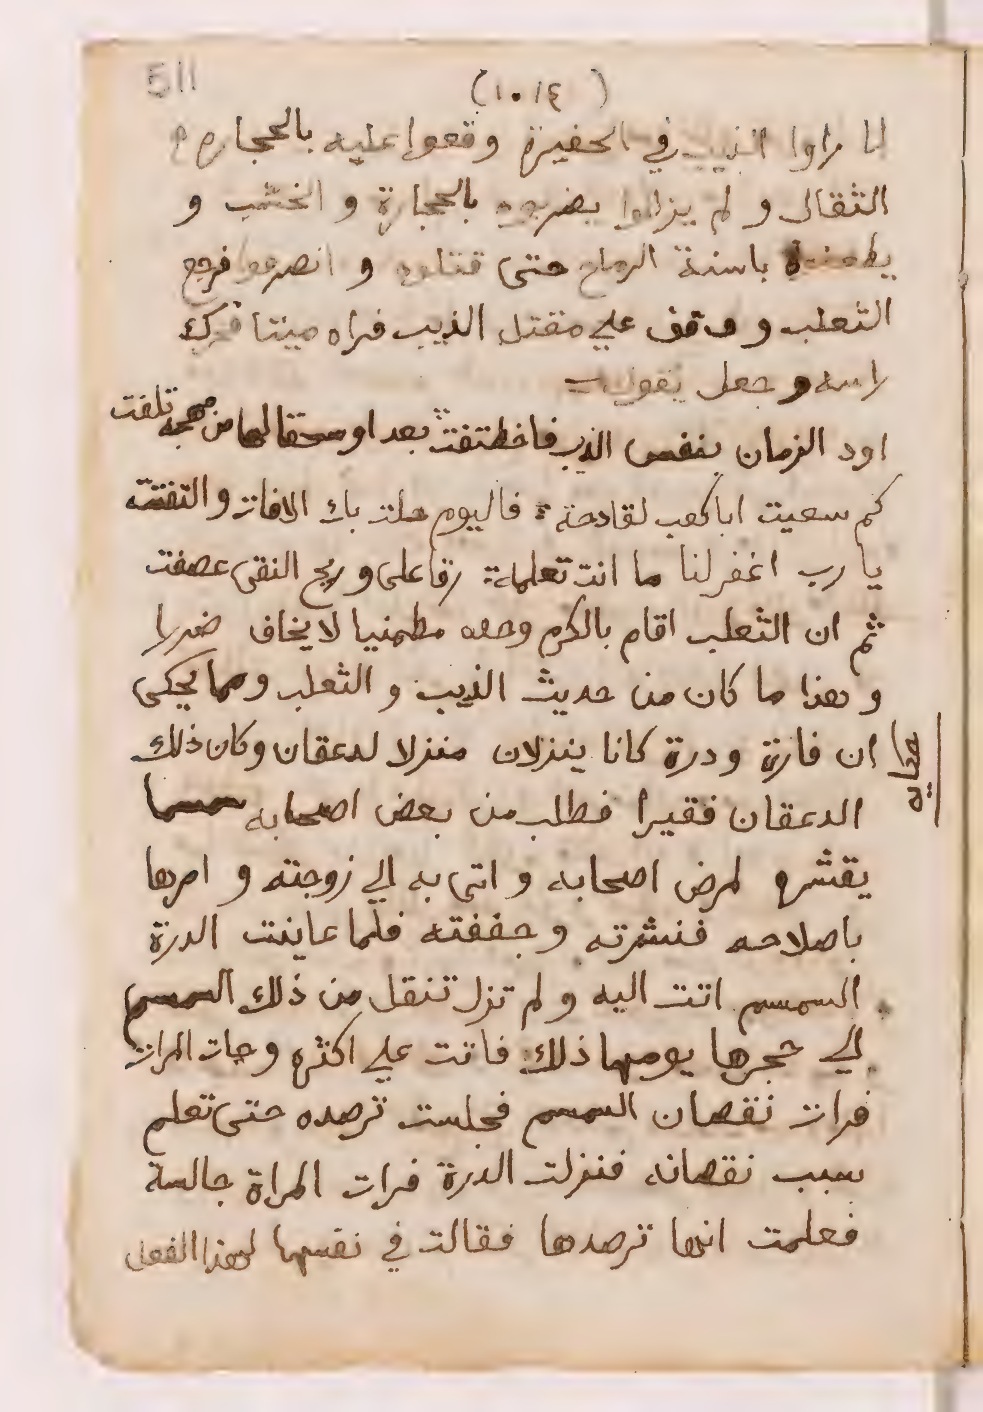 511
(١٠١٤)
لما راوا الذيب في الحفيرة وقعوا عليه بالحجاره
الثقال و لم يزالوا يضربوه بالحجارة و الخشب و
يطعنوه باسنة الرماح حتى قتلوه و انصرفوا فرجع
الثعلب و وقف علي مقتل الذيب فراه ميتا فحرك
راسه و جعل يقول
اود الزمان بنفس الذيب فاختطفت بعدا وسحقا لها من مهجة تلفت
كم سعيت اباكعب لقادحة فاليوم حلت بك الافات والتفتت
يا رب اغفر لنا ما انت تعلمه وريح النقى عصفت
ثم ان الثعلب اقام بالكرم وحده مطمنيا لا يخاف ضررا
و هذا ما كان من حديث الذيب و الثعلب ومما يحكى
حكاية
ان فارة و درة كانا ينزلان منزلا لدهقان وكان ذلك
الدهقان فقيرا فطلب من بعض اصحابه سمسما
يقشره لمرض اصحابه و اتى به الي زوجته و امرها
باصلاحه فنشرته و جففته فلما عاينت الدرة
السمسم اتت اليه و لم تزل تنقل من ذلك السمسم
الي حجرها يومها ذلك فاتت علي اكثره وجات المراة
فرات نقصان السمسم فجلست ترصده حتى تعلم
سبب نقصانه فنزلت الدرة فرات المراة جالسة
فعلمت انها ترصدها فقالت في نفسها لهذا الفعل